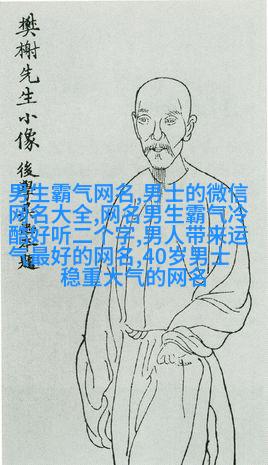 樊榭先生小像
後學
男生霸气网名,男士的微信
网名大全,网名男生霸气冷
酷好听二个字,男人带来运
气最好的网名,40岁男士
稳重大气的网名